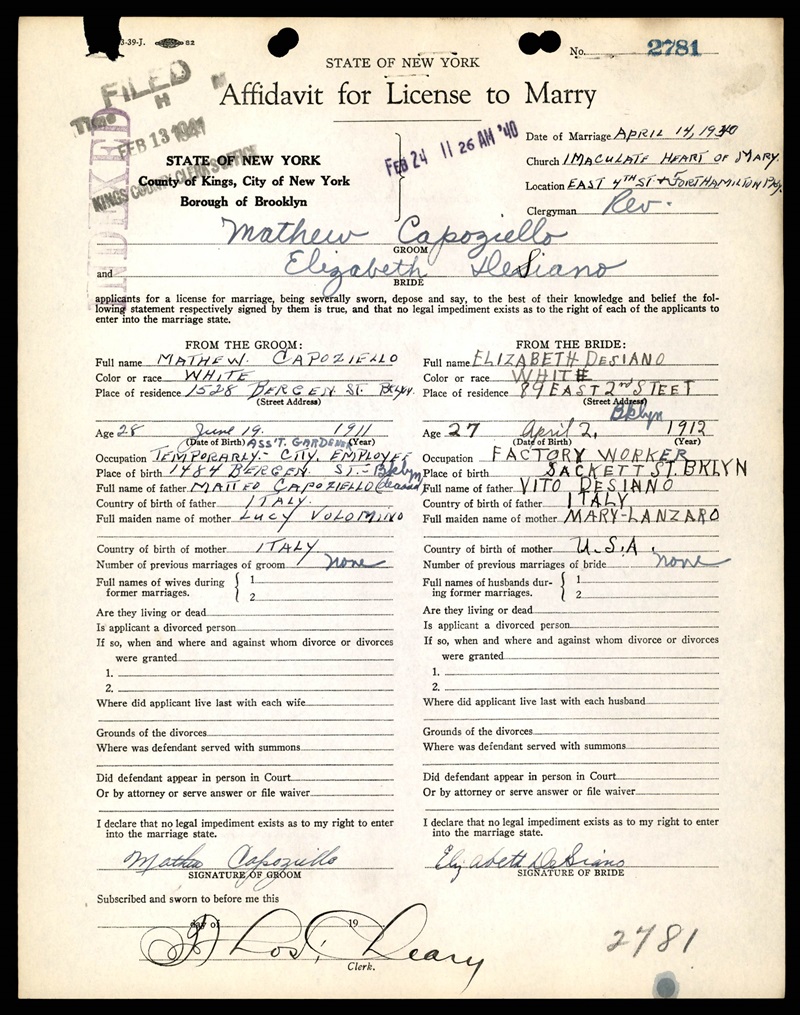 3-39-J. 82
No. 2781
STATE OF NEW YORK
Affidavit for License to Marry
FILED
H M
FEB 13 1941
KINGS COUNTY CLERK'S OFFICE
INDEXED
FEB 24 11 26 AM '40
STATE OF NEW YORK
County of Kings, City of New York
Borough of Brooklyn
Date of Marriage APRIL 14, 1940
Church IMACULATE HEART OF MARY.
Location EAST 4TH ST & FORTHAMILTON PKy.
Clergyman Rev.
Mathew Capoziello
GROOM
and Elizabeth DeSiano
BRIDE
applicants for a license for marriage, being severally sworn, depose and say, to the best of their knowledge and belief the fol-
lowing statement respectively signed by them is true, and that no legal impediment exists as to the right of each of the applicants to
enter into the marriage state.
FROM THE GROOM:
Full name MATHEW. CAPOZIELLO
Color or race WHITE
Place of residence 1528 BERGEN ST. BKLYN.
(Street Address)
Age 28 June 19. 1911
(Date of Birth) ASS'T. GARDENER (Year)
Occupation TEMPORARLY - CITY. EMPLOYEE
Place of birth 1484 BERGEN. ST. - Bklyn
Full name of father MATTEO CAPOZIELLO
Country of birth of father ITALY.
Full maiden name of mother LUCY VOLOMINO
Country of birth of mother ITALY
Number of previous marriages of groom none
Full names of wives during 1
former marriages. 2
Are they living or dead
Is applicant a divorced person
If so, when and where and against whom divorce or divorces
were granted
1.
2.
Where did applicant live last with each wife
Grounds of the divorces
Where was defendant served with summons
Did defendant appear in person in Court
Or by attorney or serve answer or file waiver
I declare that no legal impediment exists as to my right to enter
into the marriage state.
Mathew Capoziello
SIGNATURE OF GROOM
FROM THE BRIDE:
Full name ELIZABETH DESIANO
Color or race WHITE
Place of residence 89 EAST 2nd STEET
(Street Address)
Bklyn
Age 27 April 2, 1912
(Date of Birth) (Year)
Occupation FACTORY WORKER
Place of birth SACKETT ST. BKLYN
Full name of father VITO DESIANO
Country of birth of father ITALY
Full maiden name of mother MARY-LANZARO
Country of birth of mother U.S.A.
Number of previous marriages of bride none
Full names of husbands dur- 1
ing former marriages. 2
Are they living or dead
Is applicant a divorced person
If so, when and where and against whom divorce or divorces
were granted
1.
2.
Where did applicant live last with each husband
Grounds of the divorces
Where was defendant served with summons
Did defendant appear in person in Court
Or by attorney or serve answer or file waiver
I declare that no legal impediment exists as to my right to enter
into the marriage state.
Elizabeth DeSiano
SIGNATURE OF BRIDE
Subscribed and sworn to before me this
day of 19
Clerk.
2781